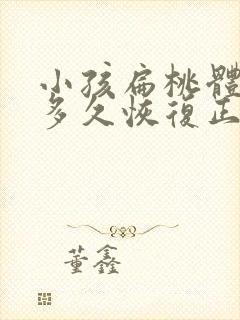 小孩扁桃體
多久恢復正
董鑫